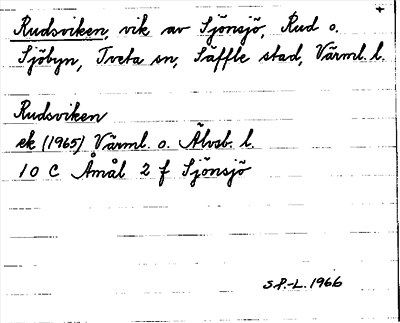 Rudsviken, vik av Sjönsjö, Rud o.
Sjöbyn, Tveta sn, Säffle stad, Värml. l.
Rudsviken
ek (1965) Värml. o. Älvsb. l.
10 C Åmål 2 f Sjönsjö
S.P.-L. 1966